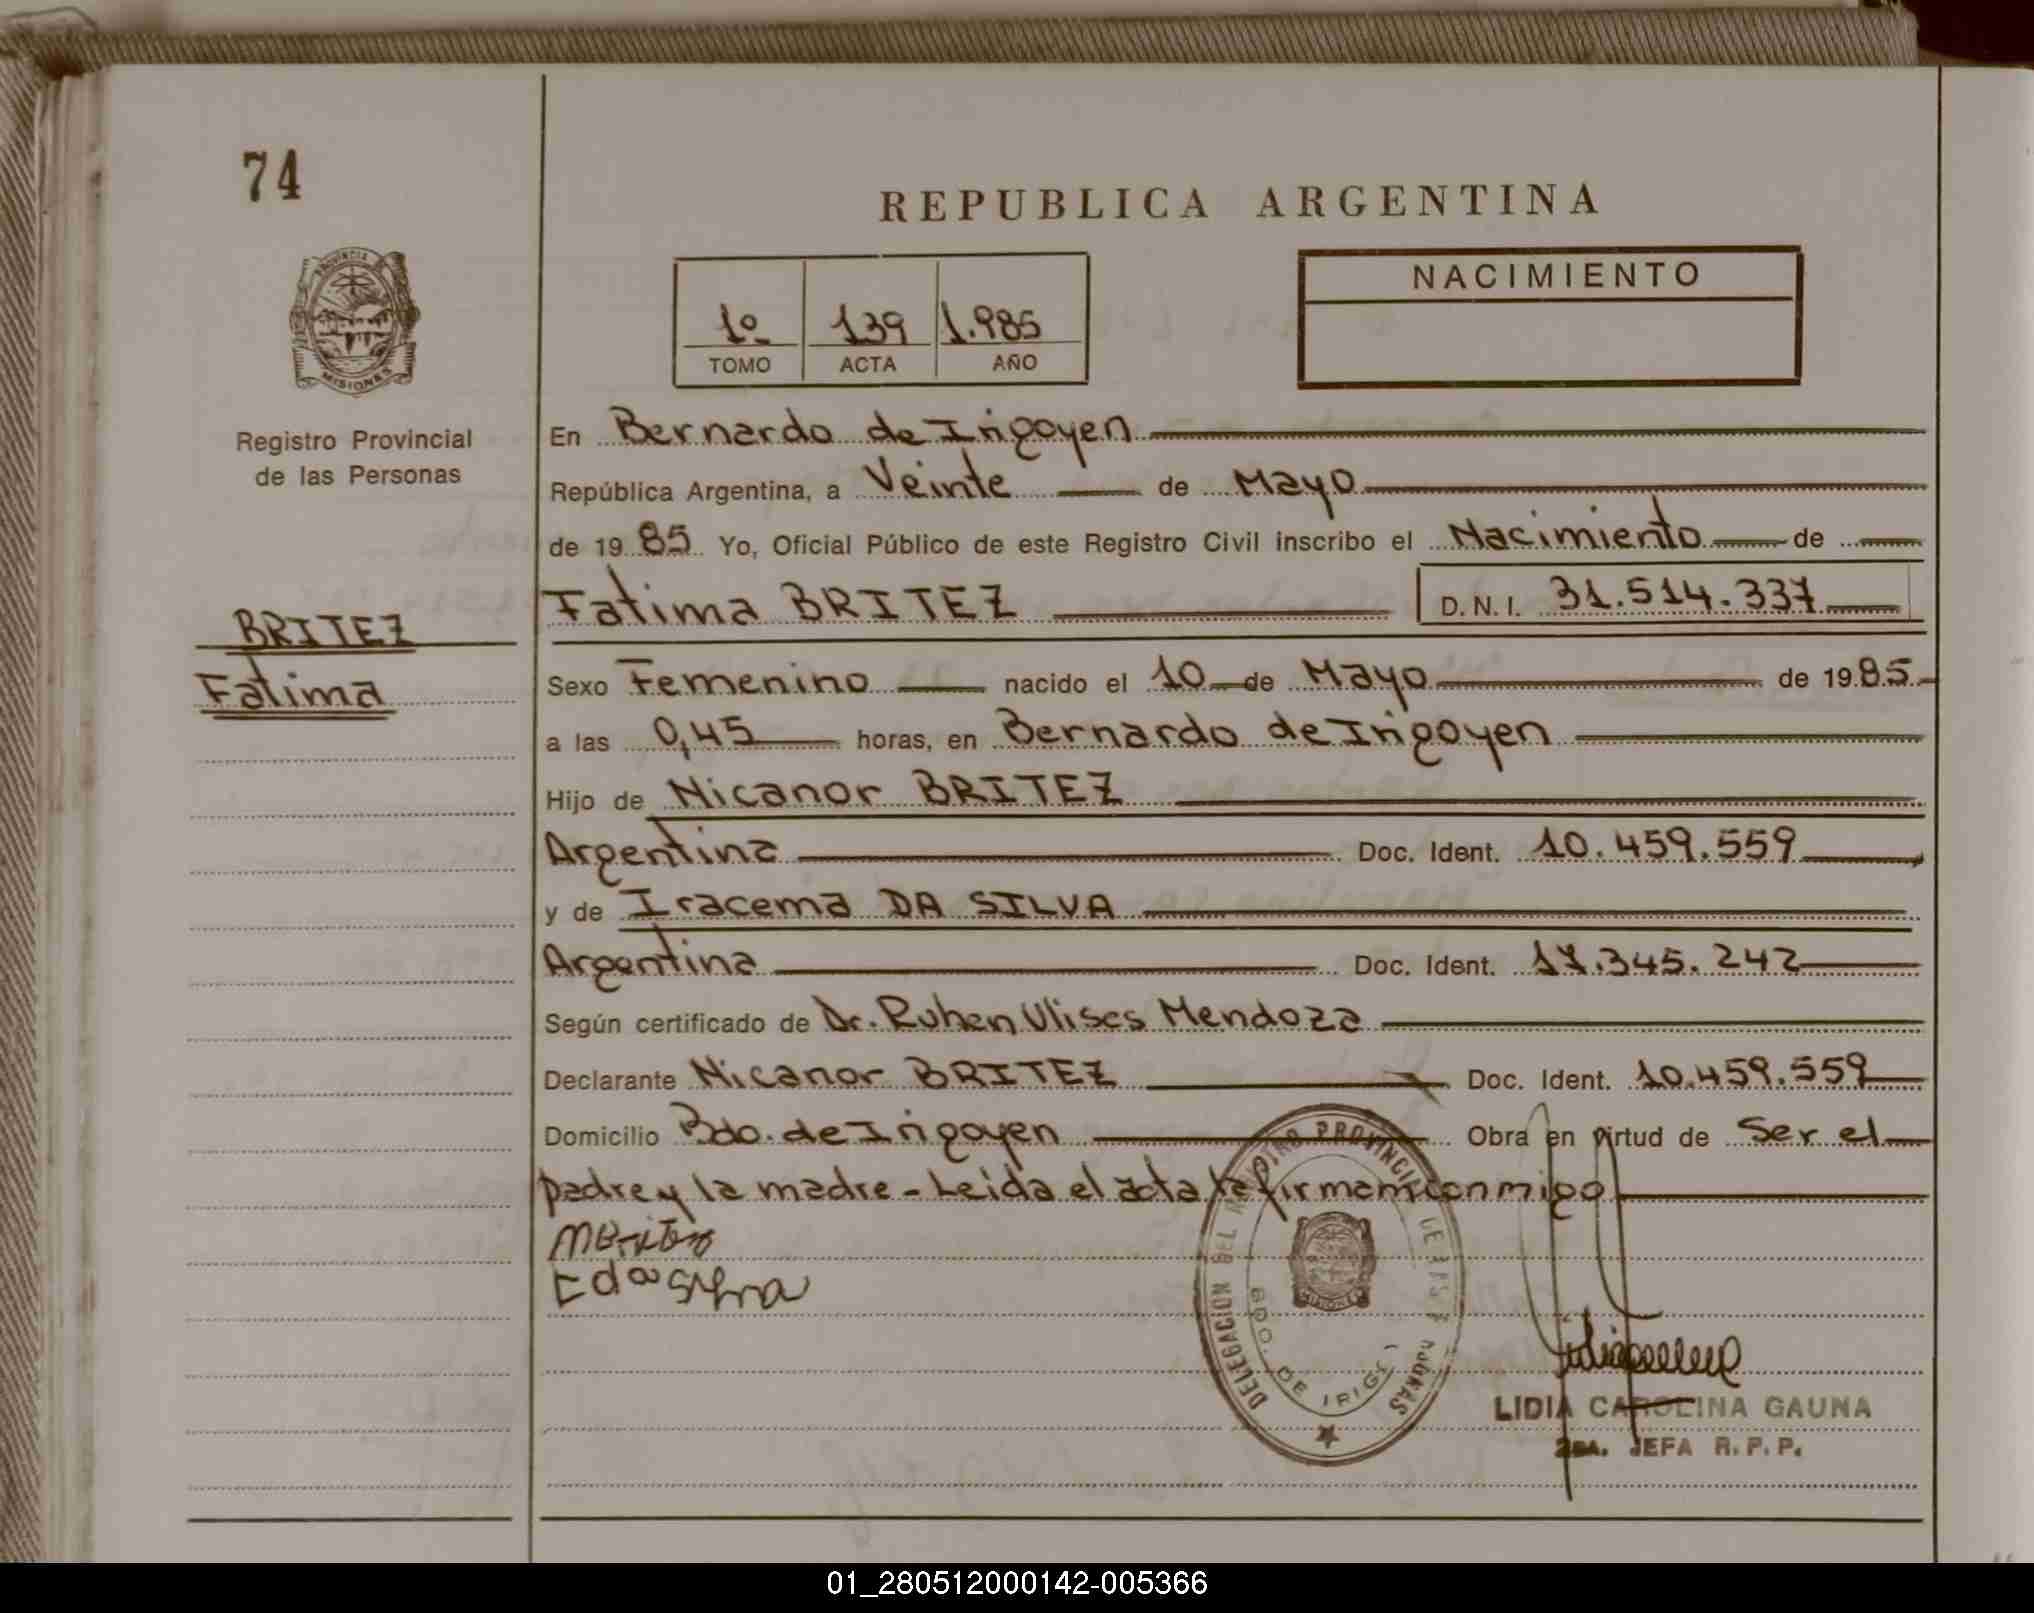 74
REPUBLICA ARGENTINA
PROVINCIA DE
MISIONES
Registro Provincial
de las Personas
1º 139 1.985
TOMO ACTA AÑO
NACIMIENTO
En Bernardo de Irigoyen
República Argentina, a Veinte de Mayo
de 19 85 Yo, Oficial Público de este Registro Civil inscribo el Nacimiento de
BRITEZ
Fatima
Fatima BRITEZ D.N.I. 31.514.337
Sexo Femenino nacido el 10 de Mayo de 19 85
a las 0,45 horas, en Bernardo de Irigoyen
Hijo de Nicanor BRITEZ
Argentina Doc. Ident. 10.459.559
y de Iracema DA SILVA
Argentina Doc. Ident. 17.345.242
Según certificado de Dr. Ruben Ulises Mendoza
Declarante Nicanor BRITEZ Doc. Ident. 10.459.559
Domicilio Bdo. de Irigoyen Obra en virtud de Ser el
padre y la madre - Leida el acta la firman conmigo
DELEGACION DEL REGISTRO PROVINCIAL DE LAS PERSONAS
BDO. DE IRIG
MISIONES
LIDIA CAROLINA GAUNA
2DA. JEFA R.P.P.
01_280512000142-005366